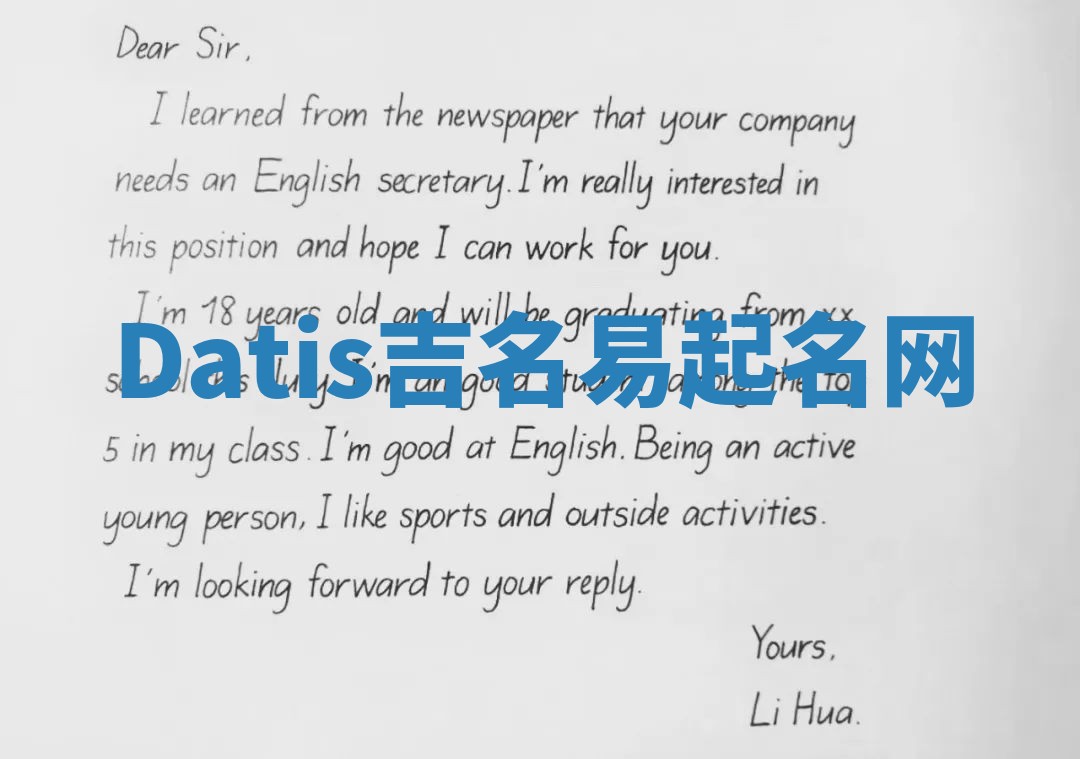 Dear Sir,
I learned from the newspaper that your company
needs an English secretary. I'm really interested in
this position and hope I can work for you.
I'm 18 years old and will be graduating from xx
Datis吉名易起名网
school this July. I'm an good student among the top
5 in my class. I'm good at English. Being an active
young person, I like sports and outside activities.
I'm looking forward to your reply.
Yours,
Li Hua.